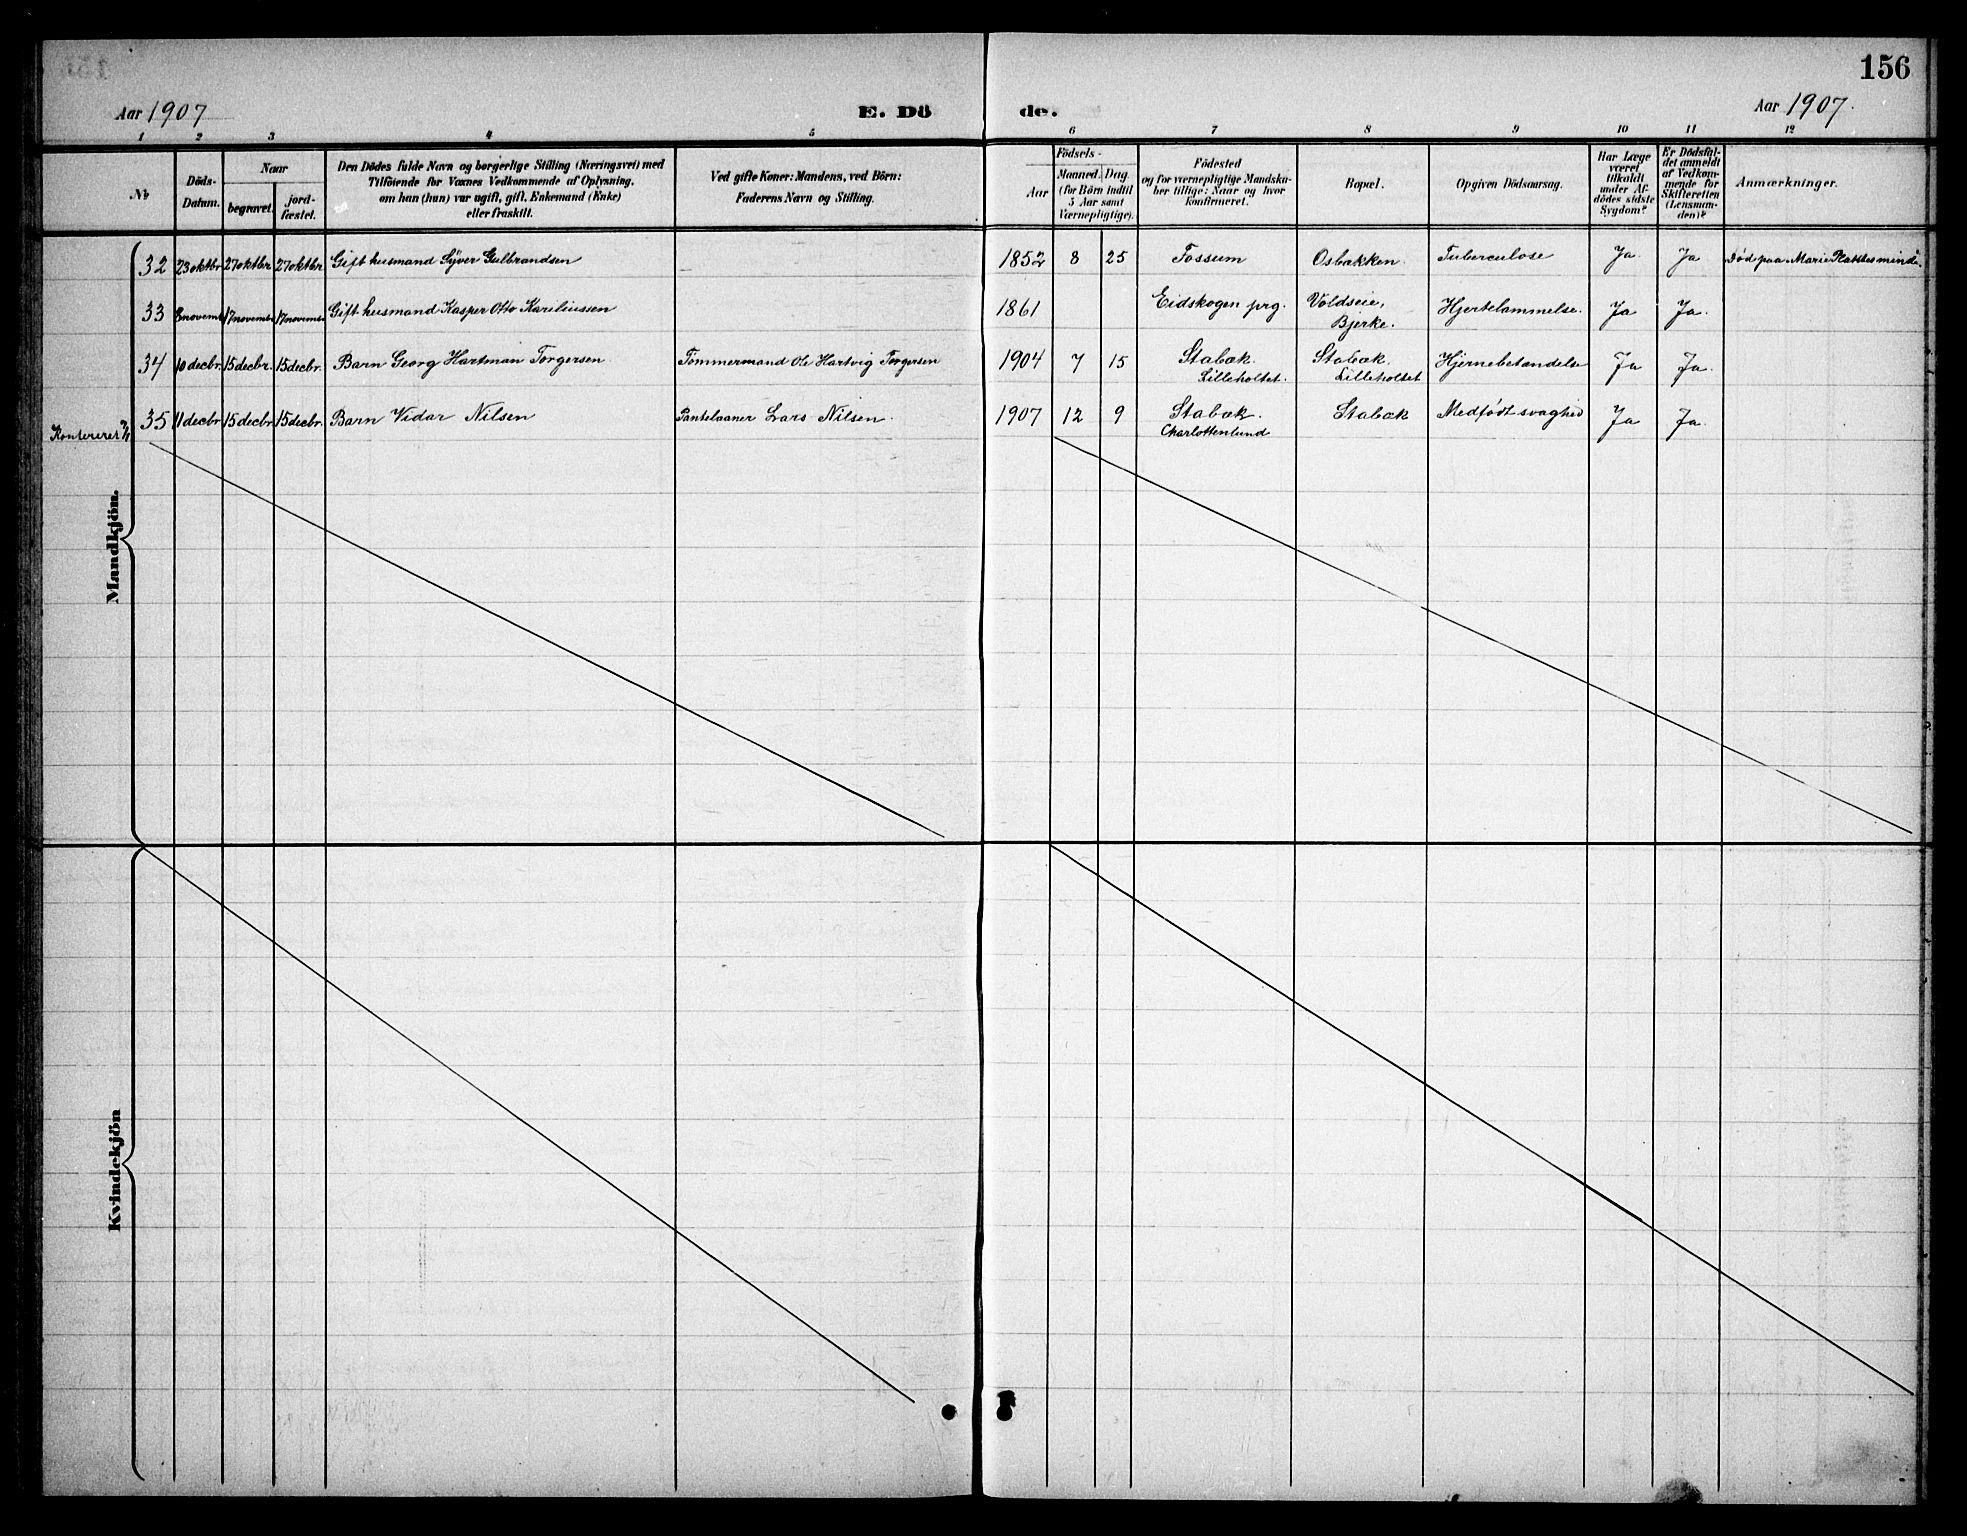 156
Aar 1907
E. Dö
de.
Aar 1907.
1 2 3 4 5 6 7 8 9 10 11 12
No
Döds-
Datum.
Naar
begravet.
jord-
fæstet.
Den Dödes fulde Navn og borgerlige Stilling (Næringsvei) med
Tilföiende for Voxnes Vedkommende af Oplysning,
om han (hun) var ugift, gift, Enkemand (Enke)
eller fraskilt.
Ved gifte Koner: Mandens, ved Börn:
Faderens Navn og Stilling.
Födsels-
Aar
Maaned. Dag.
(for Börn indtil
5 Aar samt
Værnepligtige).
Födested
og for værnepligtige Mandska-
ber tillige: Naar og hvor
konfirmeret.
Bopæl.
Opgiven Dödsaarsag.
Har Læge
været
tilkaldt
under Af-
dödes sidste
Sygdom?
Er Dödsfal-
det anmeldt
af Vedkom-
mende for
Skifteretten
(Lensman-
den)?
Anmærkninger.
32 23 oktbr 27 oktbr 27 oktbr Gift husmand Syver Gulbrandsen 1852 8 25 Fossum Osbakken. Tuberculose Ja. Ja Død paa Marie
33 8 novemb 17 novemb. 17 novemb. Gift husmand Kasper Otto Kariliussen 1861 Eidskogen prg. Voldseie, Hjertelammelse. Ja Ja.
Bjerke.
34 10 decbr. 15 decbr. 15 decbr. Barn Georg Hartman Torgersen. Tømmermand Ole Hartvig Torgersen 1904 7 15 Stabæk. Stabæk. Hjernebetændelse Ja Ja.
Lilleholtet. Lilleholtet
35 11 decbr 15 decbr. 15 decbr. Barn Vidar Nilsen Pantelaaner Lars Nilsen. 1907 12 9 Stabæk. Stabæk Medfødt svaghed Ja Ja.
Charlottenlund
Mandkjön.
Kvindekjön